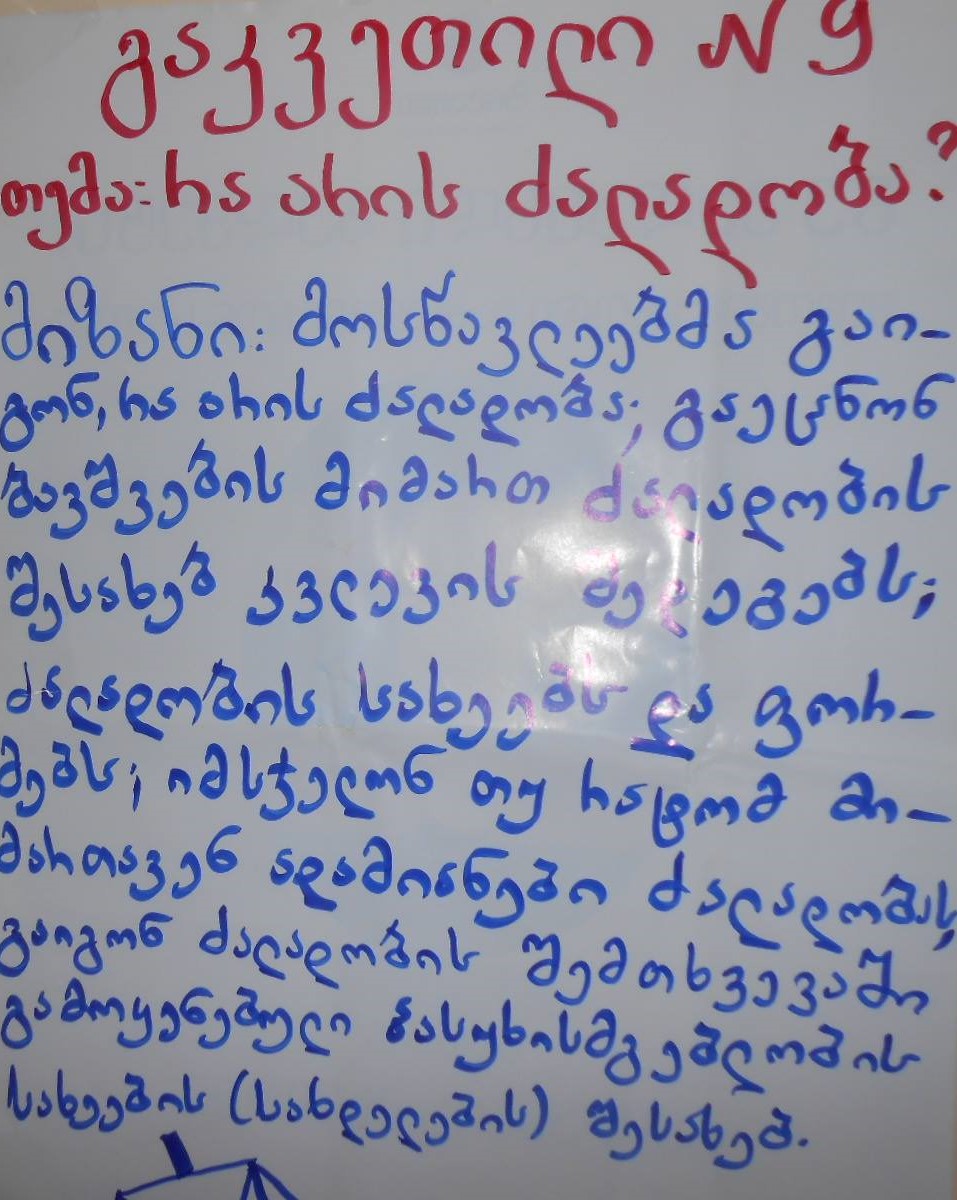 გაკვეთილი N 9
თემა: რა არის ძალადობა?
მიზანი: მოსწავლეებმა გაი-
გონ, რა არის ძალადობა; გაეცნონ
ბავშვების მიმართ ძალადობის
შესახებ კვლევის შედეგებს;
ძალადობის სახეებს და ფორ-
მებს; იმსჯელონ თუ რატომ მი-
მართავენ ადამიანები ძალადობას,
გაიგონ ძალადობის შემთხვევაში
გამოყენებული პასუხისმგებლობის
სახეების (სასჯელების) შესახებ.